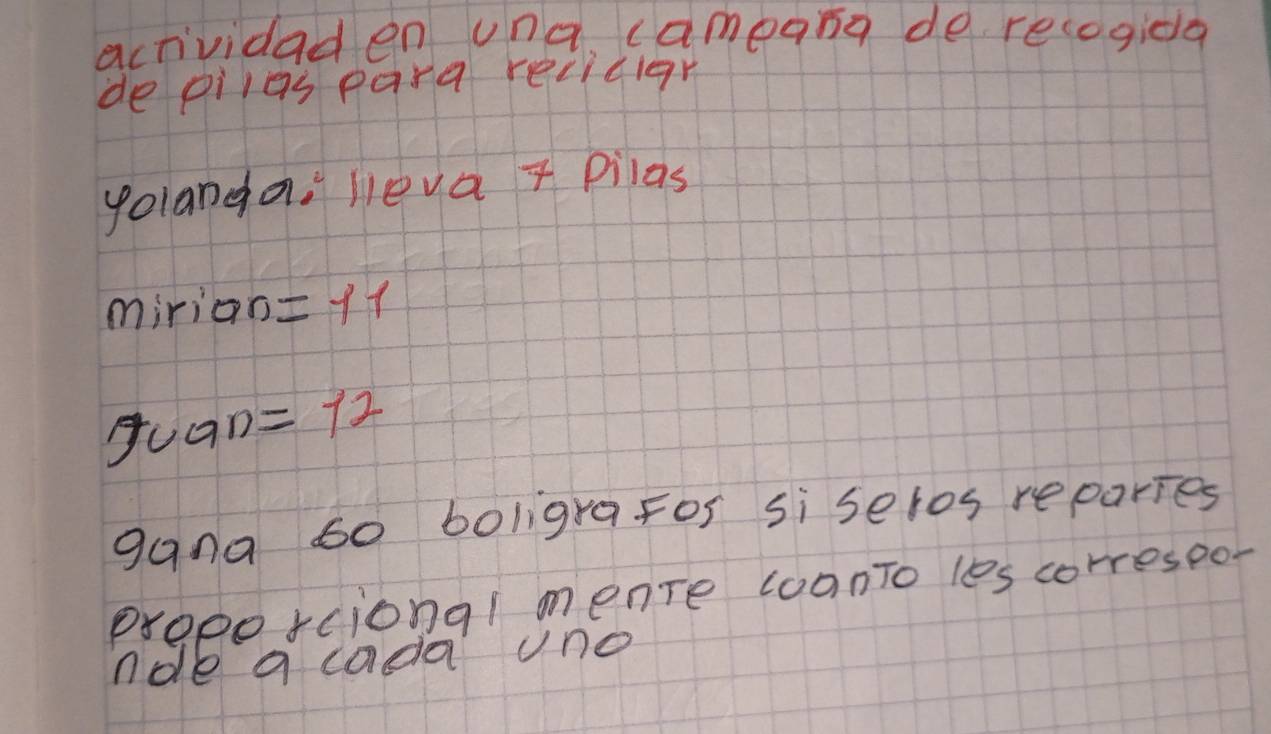 actividad en una campaña de recogida
de pilas para reciclar
yolanda: lleva 7 pilas
mirian= 11
Juan= 12
gana 60 boligrafos si selos repartes
proporcional mente cuanto les correspo-
nde a cada uno